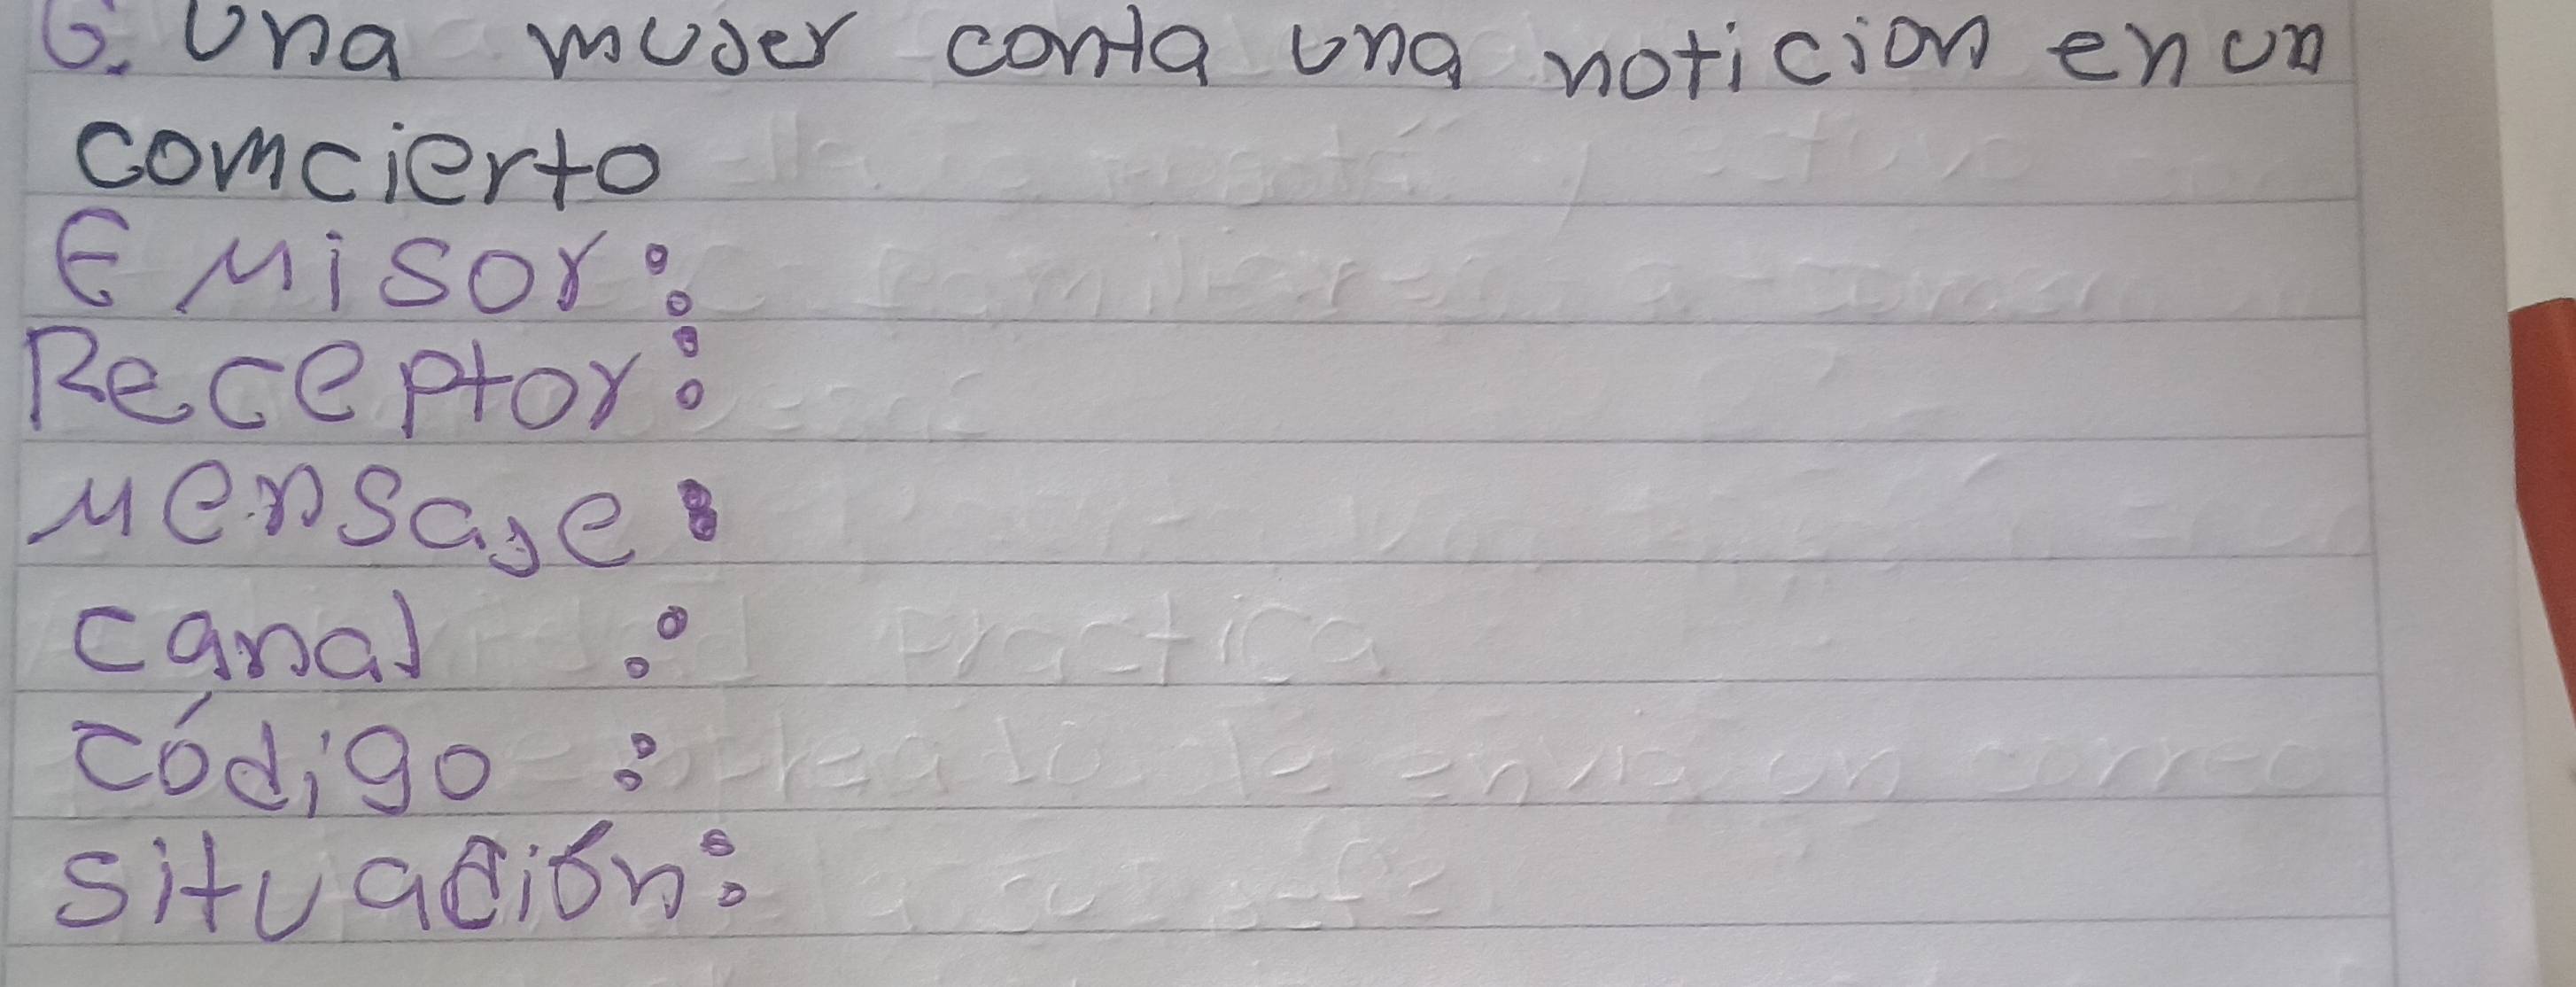 6. Una mujer conta una noticion en un
comcierto
Emisor:
Receptor:
Mensaje:
canal :
código :
situación:
practica